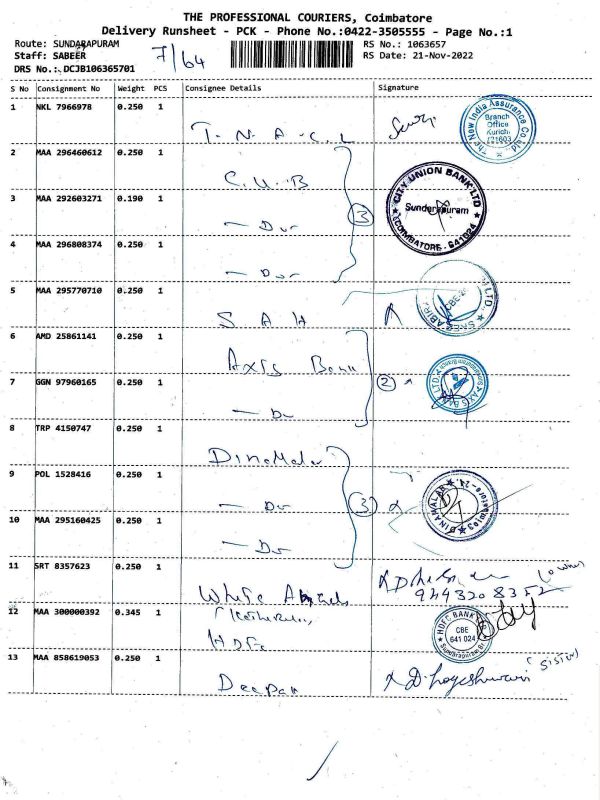 THE PROFESSIONAL COURIERS, Coimbatore
Delivery Runsheet - PCK - Phone No.:0422-3505555 - Page No.:1
Route: SUNDARAPURAM RS No.: 1063657
Staff: SABEER 7/64 RS Date: 21-Nov-2022
DRS No.: DCJB106365701
S No Consignment No Weight PCS Consignee Details Signature
1 NKL 7966978 0.250 1
T. N. A. C. L
The New India Assurance Co Ltd Branch Office Kurichi
2 MAA 296460612 0.250 1
C. U. B
3 MAA 292603271 0.190 1
— Do 3
CITY UNION BANK LTD Sundarapuram COIMBATORE - 641024
4 MAA 296808374 0.250 1
— Do
5 MAA 295770710 0.250 1
S A H
LTD. CBE-
6 AMD 25861141 0.250 1
Axis Bank
7 GGN 97960165 0.250 1
— Do 2
AXIS BANK LTD
8 TRP 4150747 0.250 1
Dinamalar
9 POL 1528416 0.250 1
— Do 3
DINAMALAR Coimbatore-24.
10 MAA 295160425 0.250 1
— Do
11 SRT 8357623 0.250 1
White (owner)
9443208352
12 MAA 300000392 0.345 1
HDFC
HDFC BANK CBE 641 024 Sundarapuram Br
13 MAA 858619053 0.250 1
Deepan
D. Logeshwari (sister)